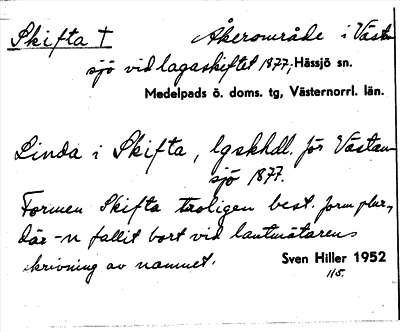 Skifta † Åkerområde i Västan-
sjö vid lagaskiftet 1877; Hässjö sn.
Medelpads ö. doms. tg, Västernorrl. län.
Linda i Skifta, lgskhdl. för Västan-
sjö 1877.
Formen Skifta troligen best. form plur.,
där -n fallit bort vid lantmätarens
skrivning av namnet. Sven Hiller 1952
11/5.